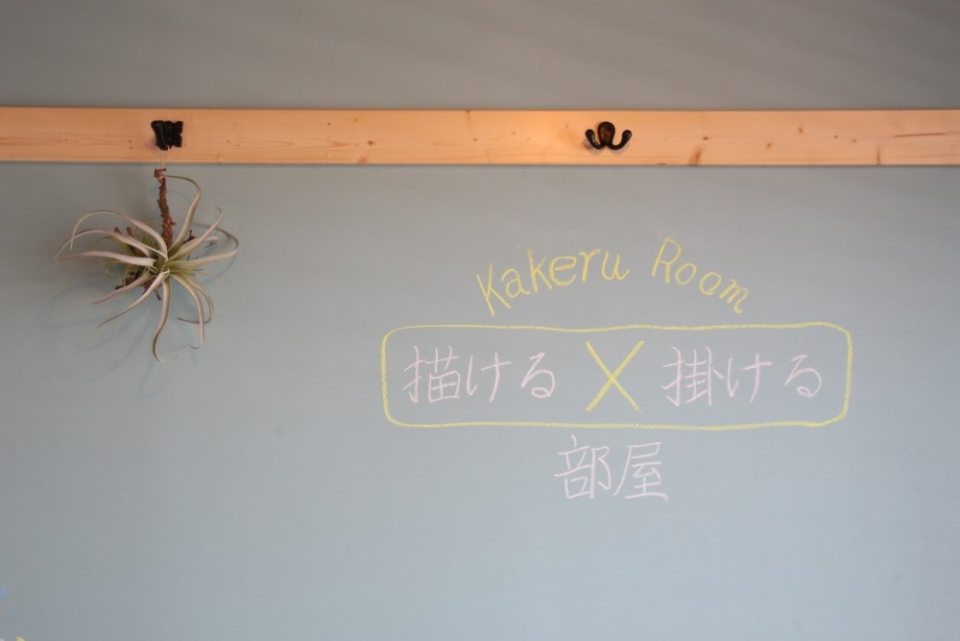 Kakeru Room
描ける×掛ける
部屋